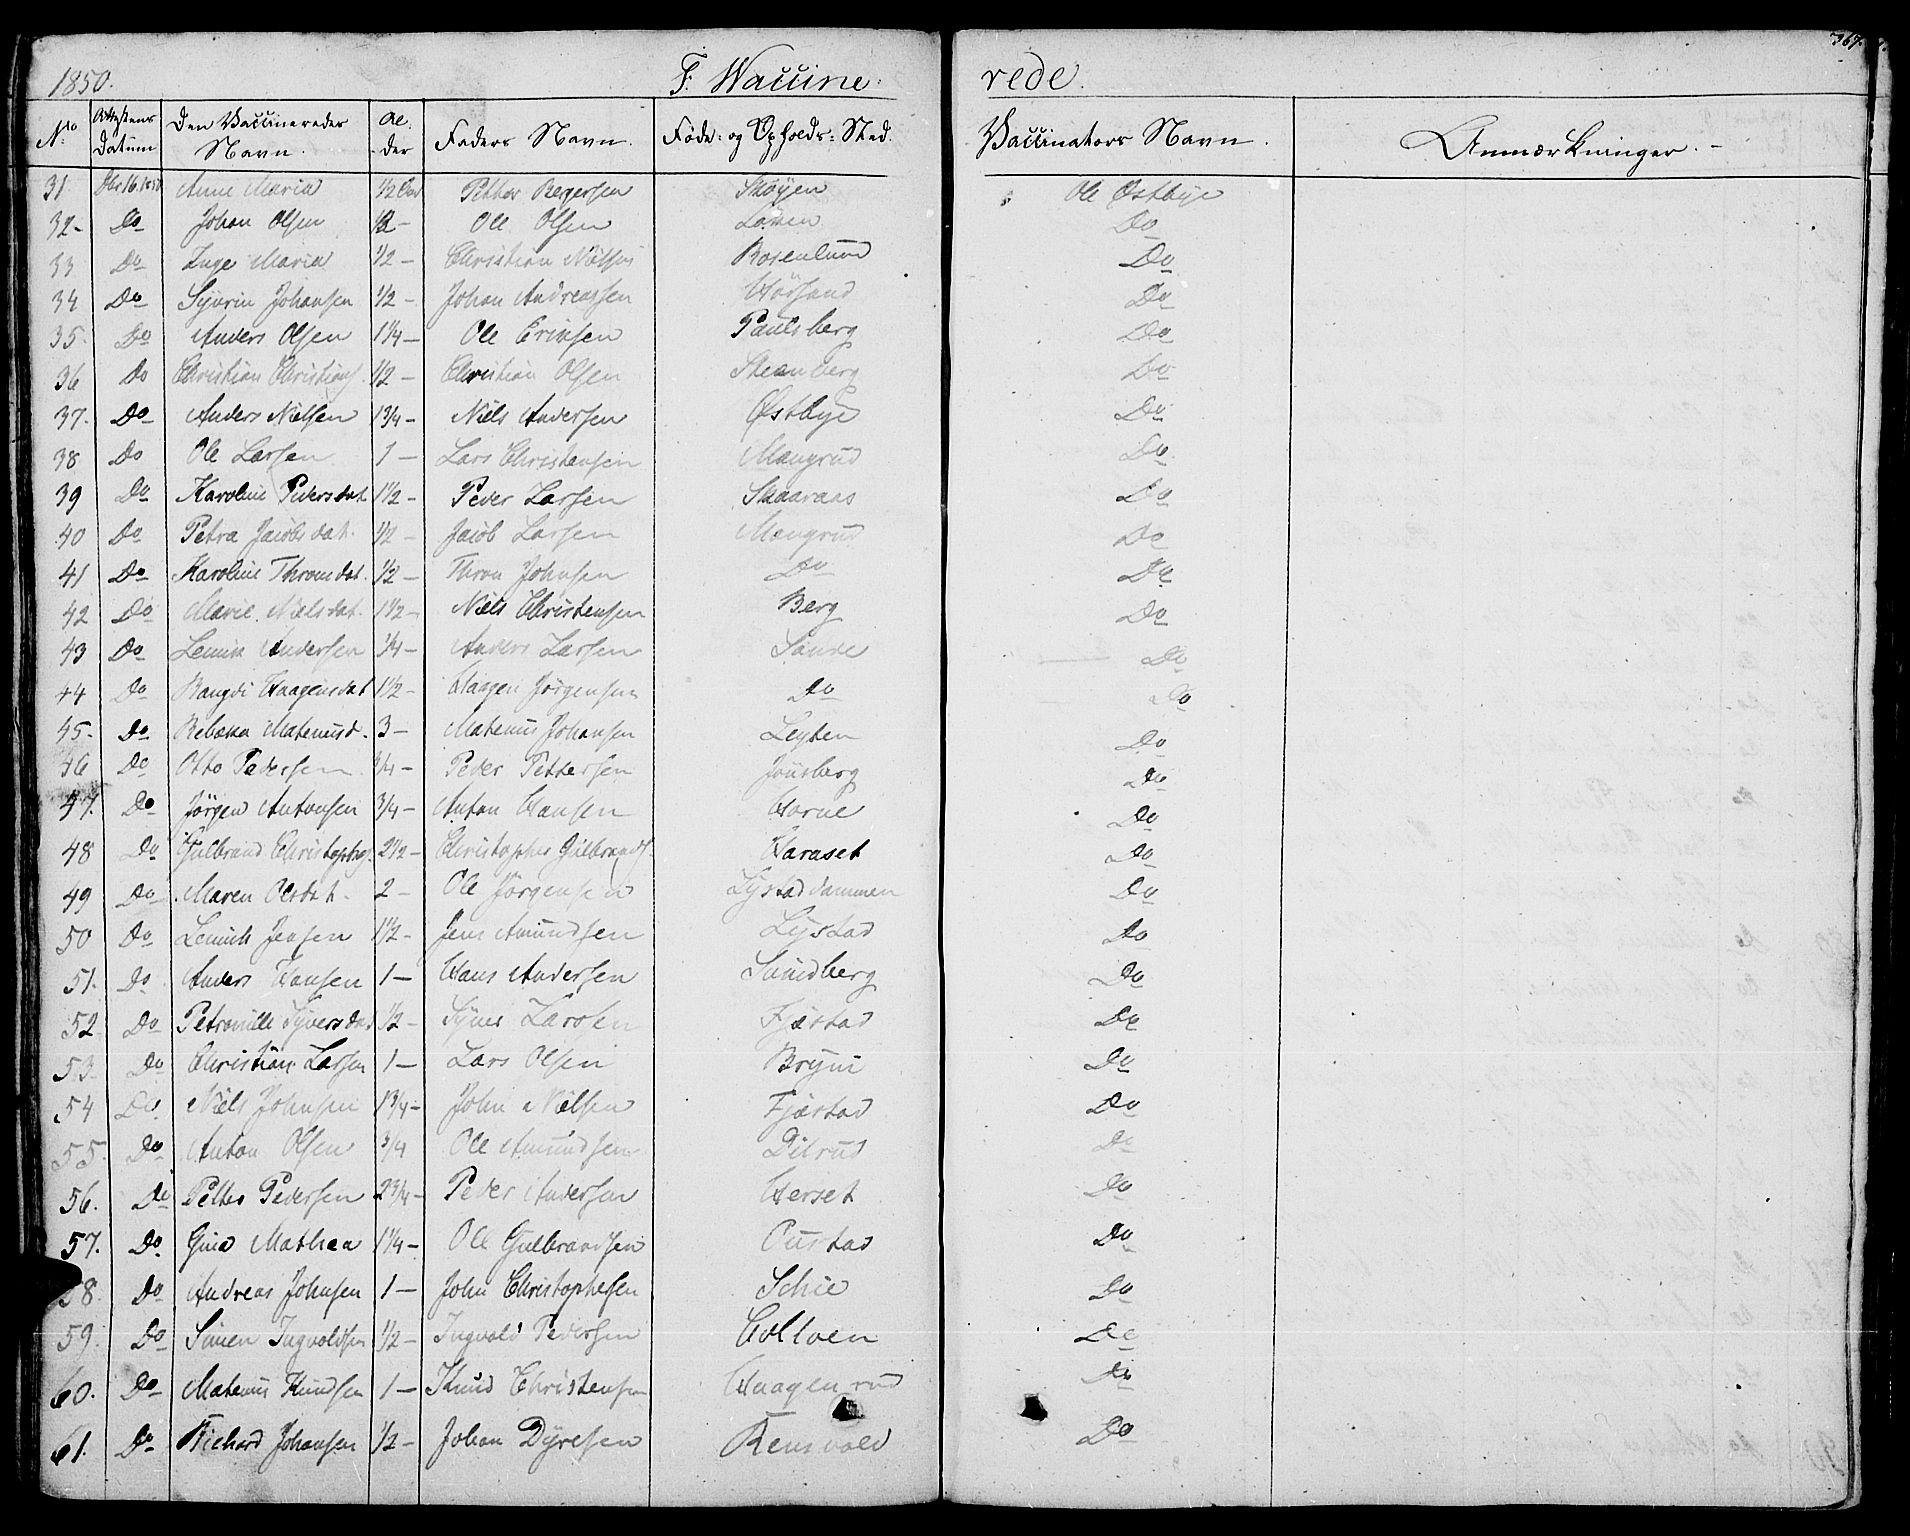 367.
1850. F. Waccine- rede.
No Attestens Datum Den Vaccineredes Navn. Al-der Faders Navn. Føde- og Opholds-Sted. Vaccinators Navn. Anmærkninger.
31 16. 1850 Anne Maria 1/2 Petter Bergersen Skøyen Ole Østbye
32- Do Johan Olsen 1/2- Ole Olsen Do
33 Do Inge Maria 1/2- Christian Nilsen Rosenlund Do
34 Do Syvrin Johansen 1/2- Johan Andreassen Hörsand Do
35. Do Anders Olsen 1 1/4- Ole Paulsberg Do
36 Do Christian Christians. 1/2- Christian Olsen Do
37. Do Anders Nielsen 1 3/4- Niels Andersen Østbye Do
38 Do Ole Larsen 1- Lars Christensen Mangrud Do
39 Do Karoline Pedersdat. 1 1/2- Peder Larsen Skaaraas Do
40 Do Petra Jacobsdat. 1/2- Jacob Larsen Mangrud Do
41 Do Karoline Thronsdat. 1/2- Thron Johnsen Do Do
42 Do Marie Nielsdat. 1 1/2- Niels Christensen Berg Do
43 Do Lemik Andersen 3/4- Anders Larsen Sande Do
44 Do Haagensdat 1 1/2- Haagen Jörgensen Do Do
45- Do Rebekka Matenusd. 3- Matenus Johansen Do
46 Do Otto Pedersen 3/4- Peder Pettersen Do
47. Do Jörgen Antonsen 3/4- Anton Hansen Horne Do
48 Do Gulbrand Christophs. 2 1/2- Christopher Gulbrands. Haraset Do
49 Do Maren Olsdat. 2- Ole Jörgensen Lystaddammen Do
50 Do Lemik Jensen 1 1/2- Jens Amundsen Lystad Do
51. Do Anders Hansen 1- Hans Andersen Sundberg Do
52 Do Petronille Syversdat 1/2- Syver Larsen Fjæstad Do
53 Do Christian Larsen 1- Lars Olsen Bryni Do
54 Do Niels Johnsen 1 3/4- John Nielsen Fjæstad Do
55. Do Anton Olsen 3/4 Ole Amundsen Ditrud Do
56. Do Petter Pedersen 2 3/4- Peder Andersen Herset Do
57. Do Gina Mathea 1 1/4- Ole Gulbrandsen Do
58. Do Andreas Johnsen 1- John Christophersen Schie Do
59. Do Simen Ingvoldsen 1/2- Ingvold Pedersen Do
60. Do Matenus Knudsen 1- Knud Christensen Haagenrud Do
61. Do Richard Johansen 1/2- Johan Dyresen Rensvold Do